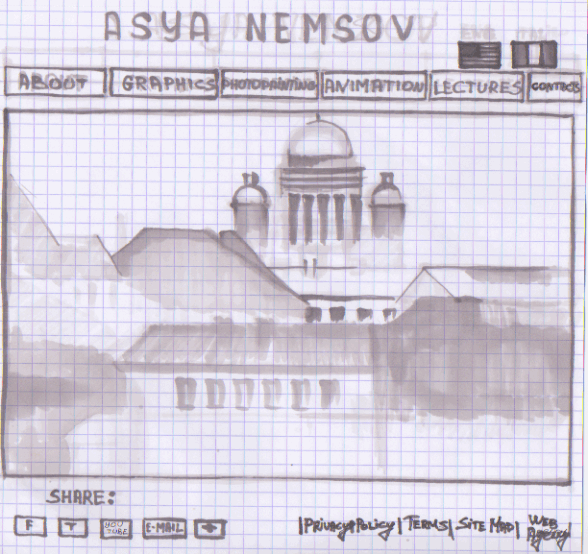 ASYA NEMSOV
ENG ITALY
ABOUT GRAPHICS PHOTOPAINTING ANIMATION LECTURES CONTACTS
SHARE:
F T YOU TUBE E-MAIL + |PRIVACY&POLICY | TERMS| SITE MAP| WEB Agency|